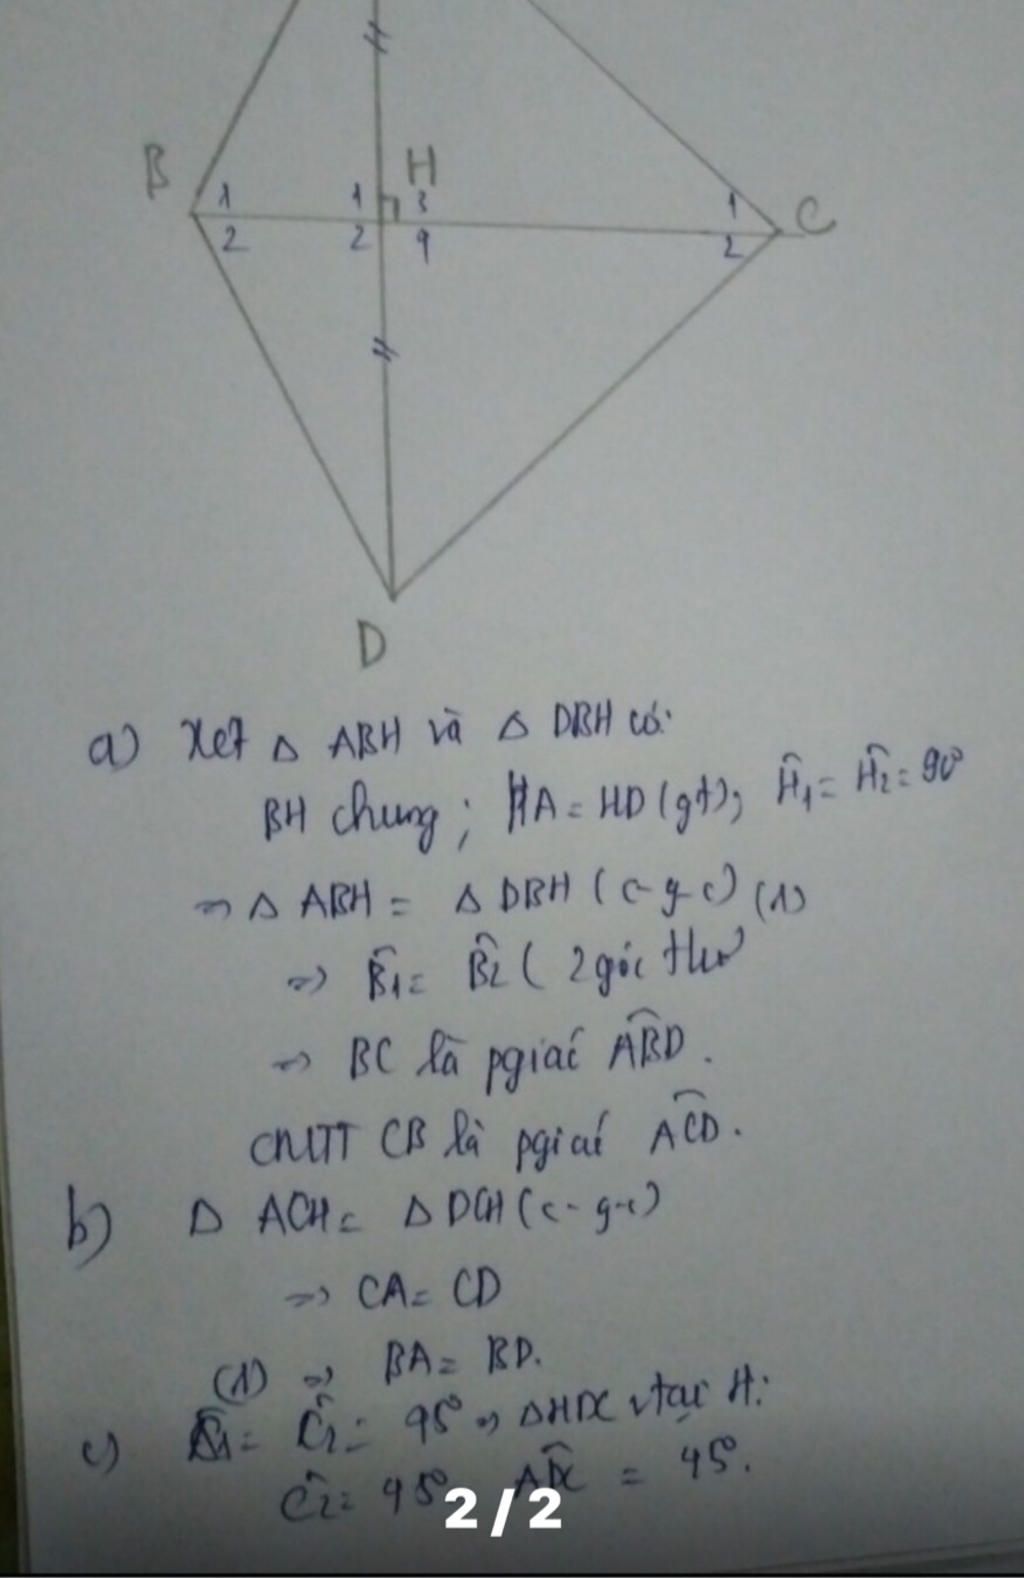 B
H
C
1
1
3
1
2
2
4
2
D
a) Xét △ ABH và △ DBH có:
BH chung; HA = HD (gt); Ĥ₁ = Ĥ₂ = 90°
=> △ ABH = △ DBH (c-g-c) (1)
=> B̂₁ = B̂₂ ( 2 góc
=> BC là pgiác ABD.
CMTT CB là pgiác ACD.
b) △ ACH = △ DCH (c-g-c)
=> CA = CD
(1) => BA = BD.
c) Ĉ₁ = Ĉ₂ = 45° => △HDC vtại H:
Ĉ₂ = 45° ADC = 45°.
2/2